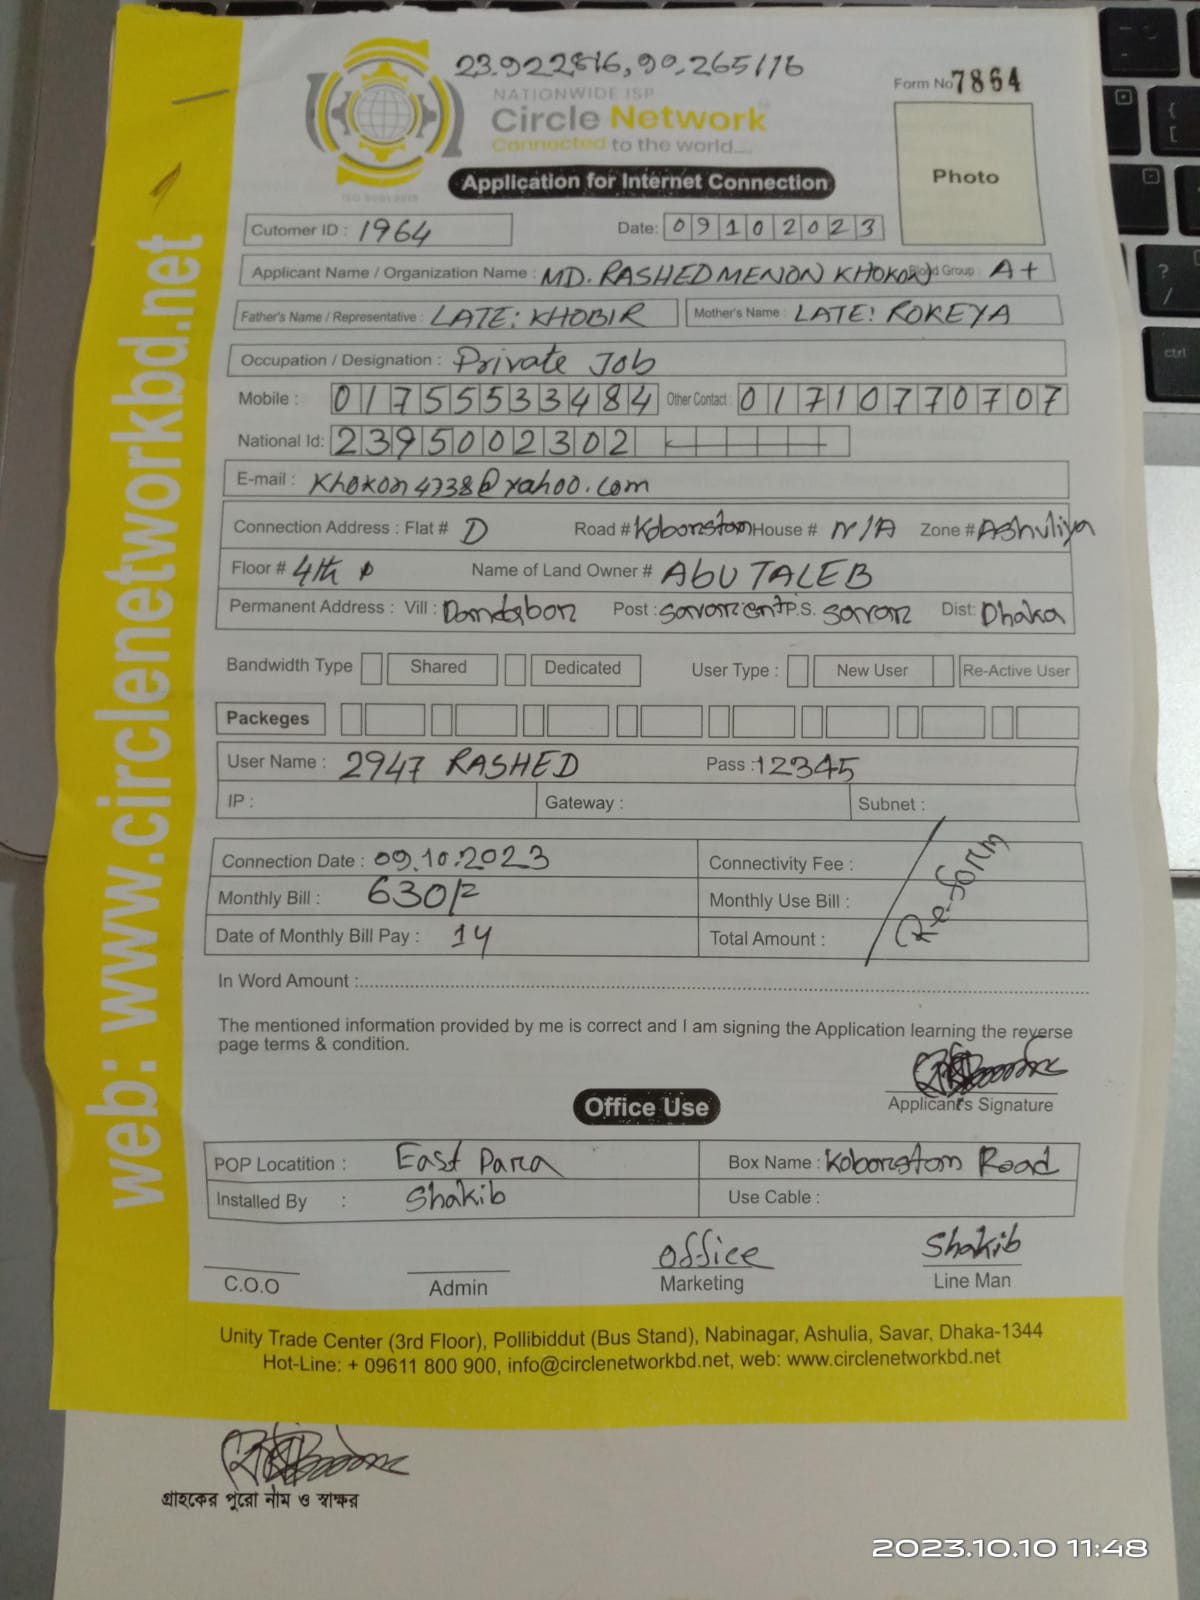 23.922816, 90.265116
NATIONWIDE ISP
Form No 7864
Circle Network
Connected to the world....
Photo
Application for Internet Connection
ISO 9001:2015
Cutomer ID : 1964 Date: 09102023
Applicant Name / Organization Name : MD. RASHED MENON KHOKON Blood Group : A+
Father's Name / Representative : LATE: KHOBIR Mother's Name : LATE: ROKEYA
Occupation / Designation : Private Job
Mobile : 01755533484 Other Contact : 01710770707
National Id: 2395002302
E-mail : Khokon4738@yahoo.com
Connection Address : Flat # D Road # Koborstam House # N/A Zone # Ashuliya
Floor # 4th Name of Land Owner # ABU TALEB
Permanent Address : Vill : Dandabor Post : savarcent P.S. savar Dist: Dhaka
Bandwidth Type Shared Dedicated User Type : New User Re-Active User
Packeges
User Name : 2947 RASHED Pass : 12345
IP : Gateway : Subnet :
Connection Date : 09.10.2023 Connectivity Fee :
Monthly Bill : 630/= Monthly Use Bill :
Re-form
Date of Monthly Bill Pay : 14 Total Amount :
In Word Amount :
The mentioned information provided by me is correct and I am signing the Application learning the reverse
page terms & condition.
Applicant's Signature
Office Use
POP Locatition : East Para Box Name : Koborstam Road
Installed By : Shakib Use Cable :
office Shakib
C.O.O Admin Marketing Line Man
Unity Trade Center (3rd Floor), Pollibiddut (Bus Stand), Nabinagar, Ashulia, Savar, Dhaka-1344
Hot-Line: + 09611 800 900, info@circlenetworkbd.net, web: www.circlenetworkbd.net
web: www.circlenetworkbd.net
গ্রাহকের পুরো নাম ও স্বাক্ষর
2023.10.10 11:48